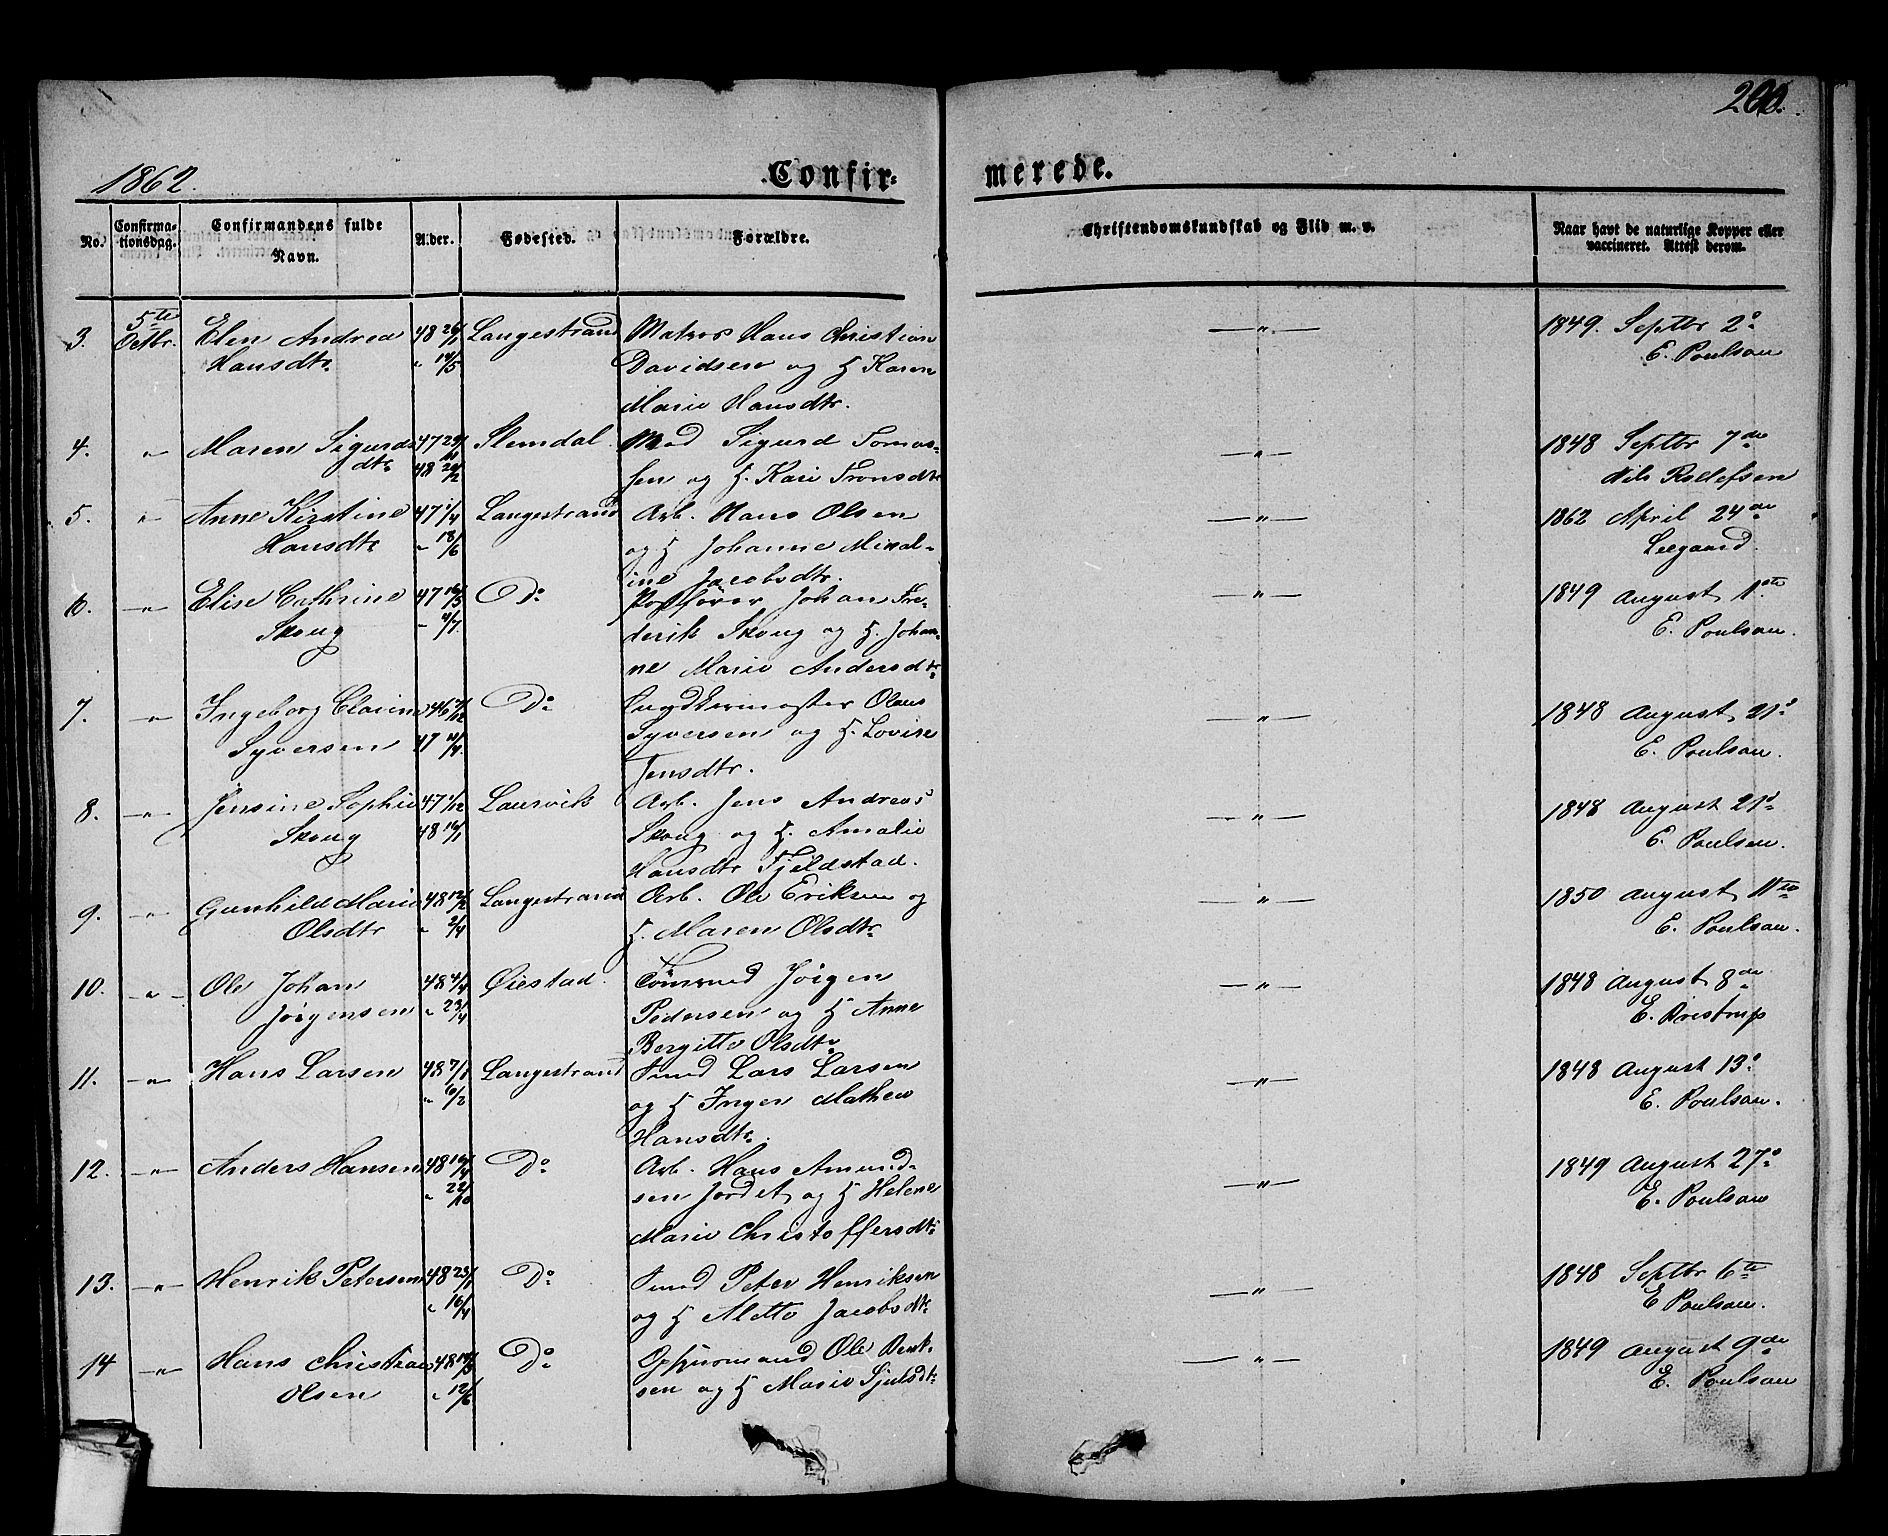 200.
1862.
Confir-
merede.
No.
Confirma-
tionsdag.
Confirmandens fulde
Navn.
Alder.
Fødested.
Forældre.
Christendomskundskab og Flid m. v.
Naar havt de naturlige Kopper eller
vaccineret. Attest derom.
3. 5te Octbr. Elen Andrea 48 26/1 Langestrand Matros Hans Christian — " — 1849. Septbr 2o
Hansdtr " 14/5 Davidsen og H Karen E. Poulsen
Marie Hansdtr.
4. " Maren Sigurds 47 Slemdal. Sigurd Tomas- — " — 1848 Septbr 7de
dtr 48 24/2 sen og H. Kari Tronsdtr Nils Rollefsen
5. " Anne Kirstine 47 1/4 Langestrand Arb. Hans Olsen — " — 1862 April 24de
Hansdtr " 18/6 og H Johanne Minal- Leegaard.
ine Jacobsdtr.
6. — " — Elise Cathrine 47 16/5 Do Postfører Johan Fre- — " — 1849 August 1ste
Skoug " 4/7. derik Skoug og H. Johan- E. Poulsen.
ne Marie Andersdtr
7. — " Ingeborg Clarine 46 Do Olaus — " — 1848 August 21o
Syversen 47 11/4. Syversen og H. Lovise E. Poulsen.
Jensdtr.
8. — " — Jensine Sophie 47 1/12 Laurvik Arb. Jens Andreas — " — 1848 August 21o
Skoug 48 16/1 Skoug og H. Amalie E. Poulsen.
Hansdtr Fjeldstad.
9. — " — Gunhild Marie 48 12/2 Langestrand Arb. Ole Eriksen og — " — 1850 August 11te
Olsdtr " 2/4 H. Maren Olsdtr E. Poulsen.
10. — " — Ole Johan 48 4/4 Øiestad. Tømmd Jørgen — " — 1848 August 8de
Jørgensen " 23/4 Pedersen og H Anne E. Qvistrup
Bergitte Olsdtr
11. — " — Hans Larsen 48 7/1 Langestrand Smed Lars Larsen — " — 1848 August 13o
" 6/2 og H Inger Mathea E. Poulsen.
Hansdtr.
12. — " — Anders Hansen 48 16/4 Do Arb. Hans Amund- — " — 1849 August 27o
" 22/10 sen Jordet og H Helene E. Poulsen
Marie Christoffersdtr
13. — " — Henrik Petersen 48 23/1 Do Smed Peter Henriksen — " — 1848 Septbr 6te
" 16/4 og H Alette Jacobsdtr E Poulsen.
14 — " — Hans Christian 48 14/3 Do Opsynsmand Ole Bent- — " — 1849 August 9de
Olsen " 12/6 sen og H Marie Sjulsdtr E. Poulsen